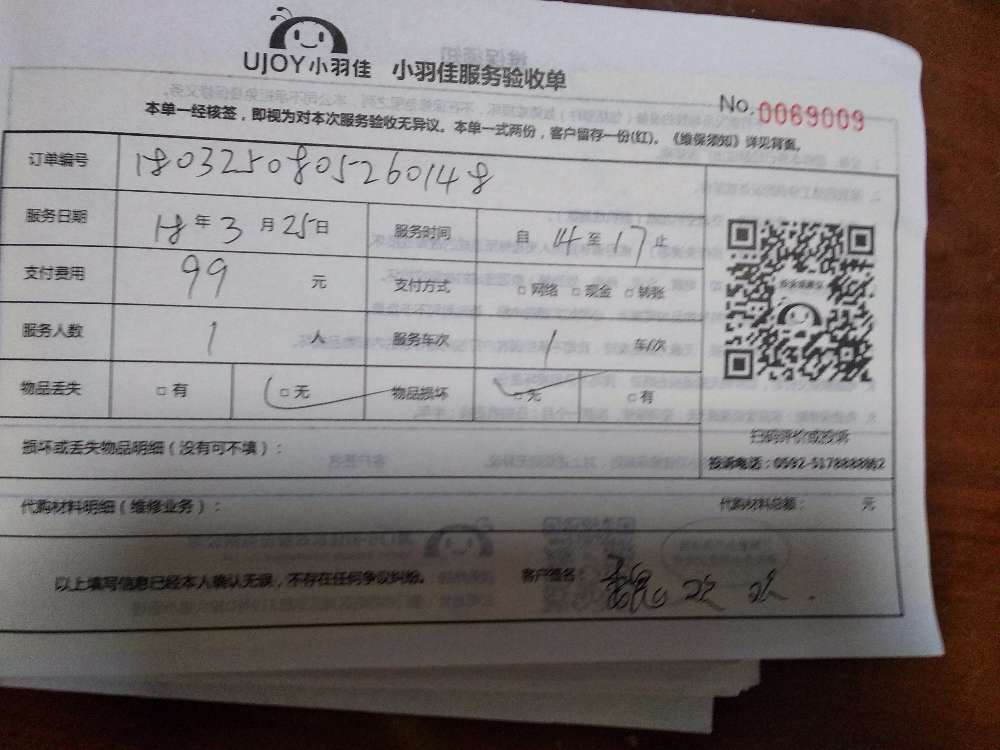 UJOY小羽佳 小羽佳服务验收单
No. 0069009
本单一经核签，即视为对本次服务验收无异议。本单一式两份，客户留存一份(红)。《维保须知》详见背面。
订单编号 1803250805260148
服务日期 18年3月25日 服务时间 自14至17止
支付费用 99 元 支付方式 □网络 □现金 □转账
服务人数 1 人 服务车次 1 车/次
物品丢失 □有 □无 物品损坏 □无 □有
扫码评价或投诉
损坏或丢失物品明细（没有可不填）：
投诉电话：0592-5178888转2
代购材料明细（维修业务）： 代购材料总额： 元
以上填写信息已经本人确认无误，不存在任何争议纠纷。 客户签名：